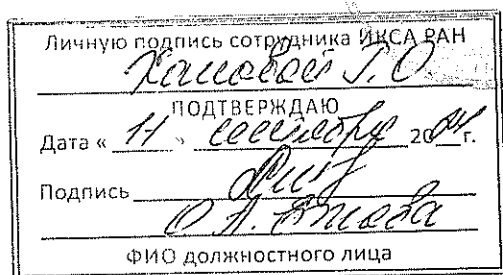 Личную подпись сотрудника ИКСА РАН
ПОДТВЕРЖДАЮ
Дата « 11 » сентября 20 г.
Подпись
О.А.
ФИО должностного лица